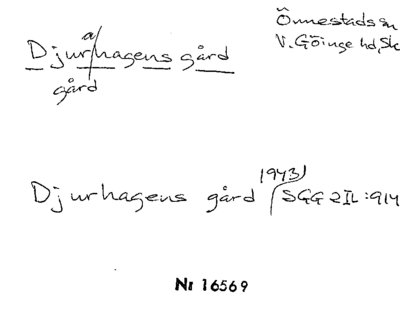 Djurhagens gård
a
gård
Önnestads sn
V. Göinge hd, Sk
Djurhagens gård (1943) SGG 2 IL:914
Nr 16569